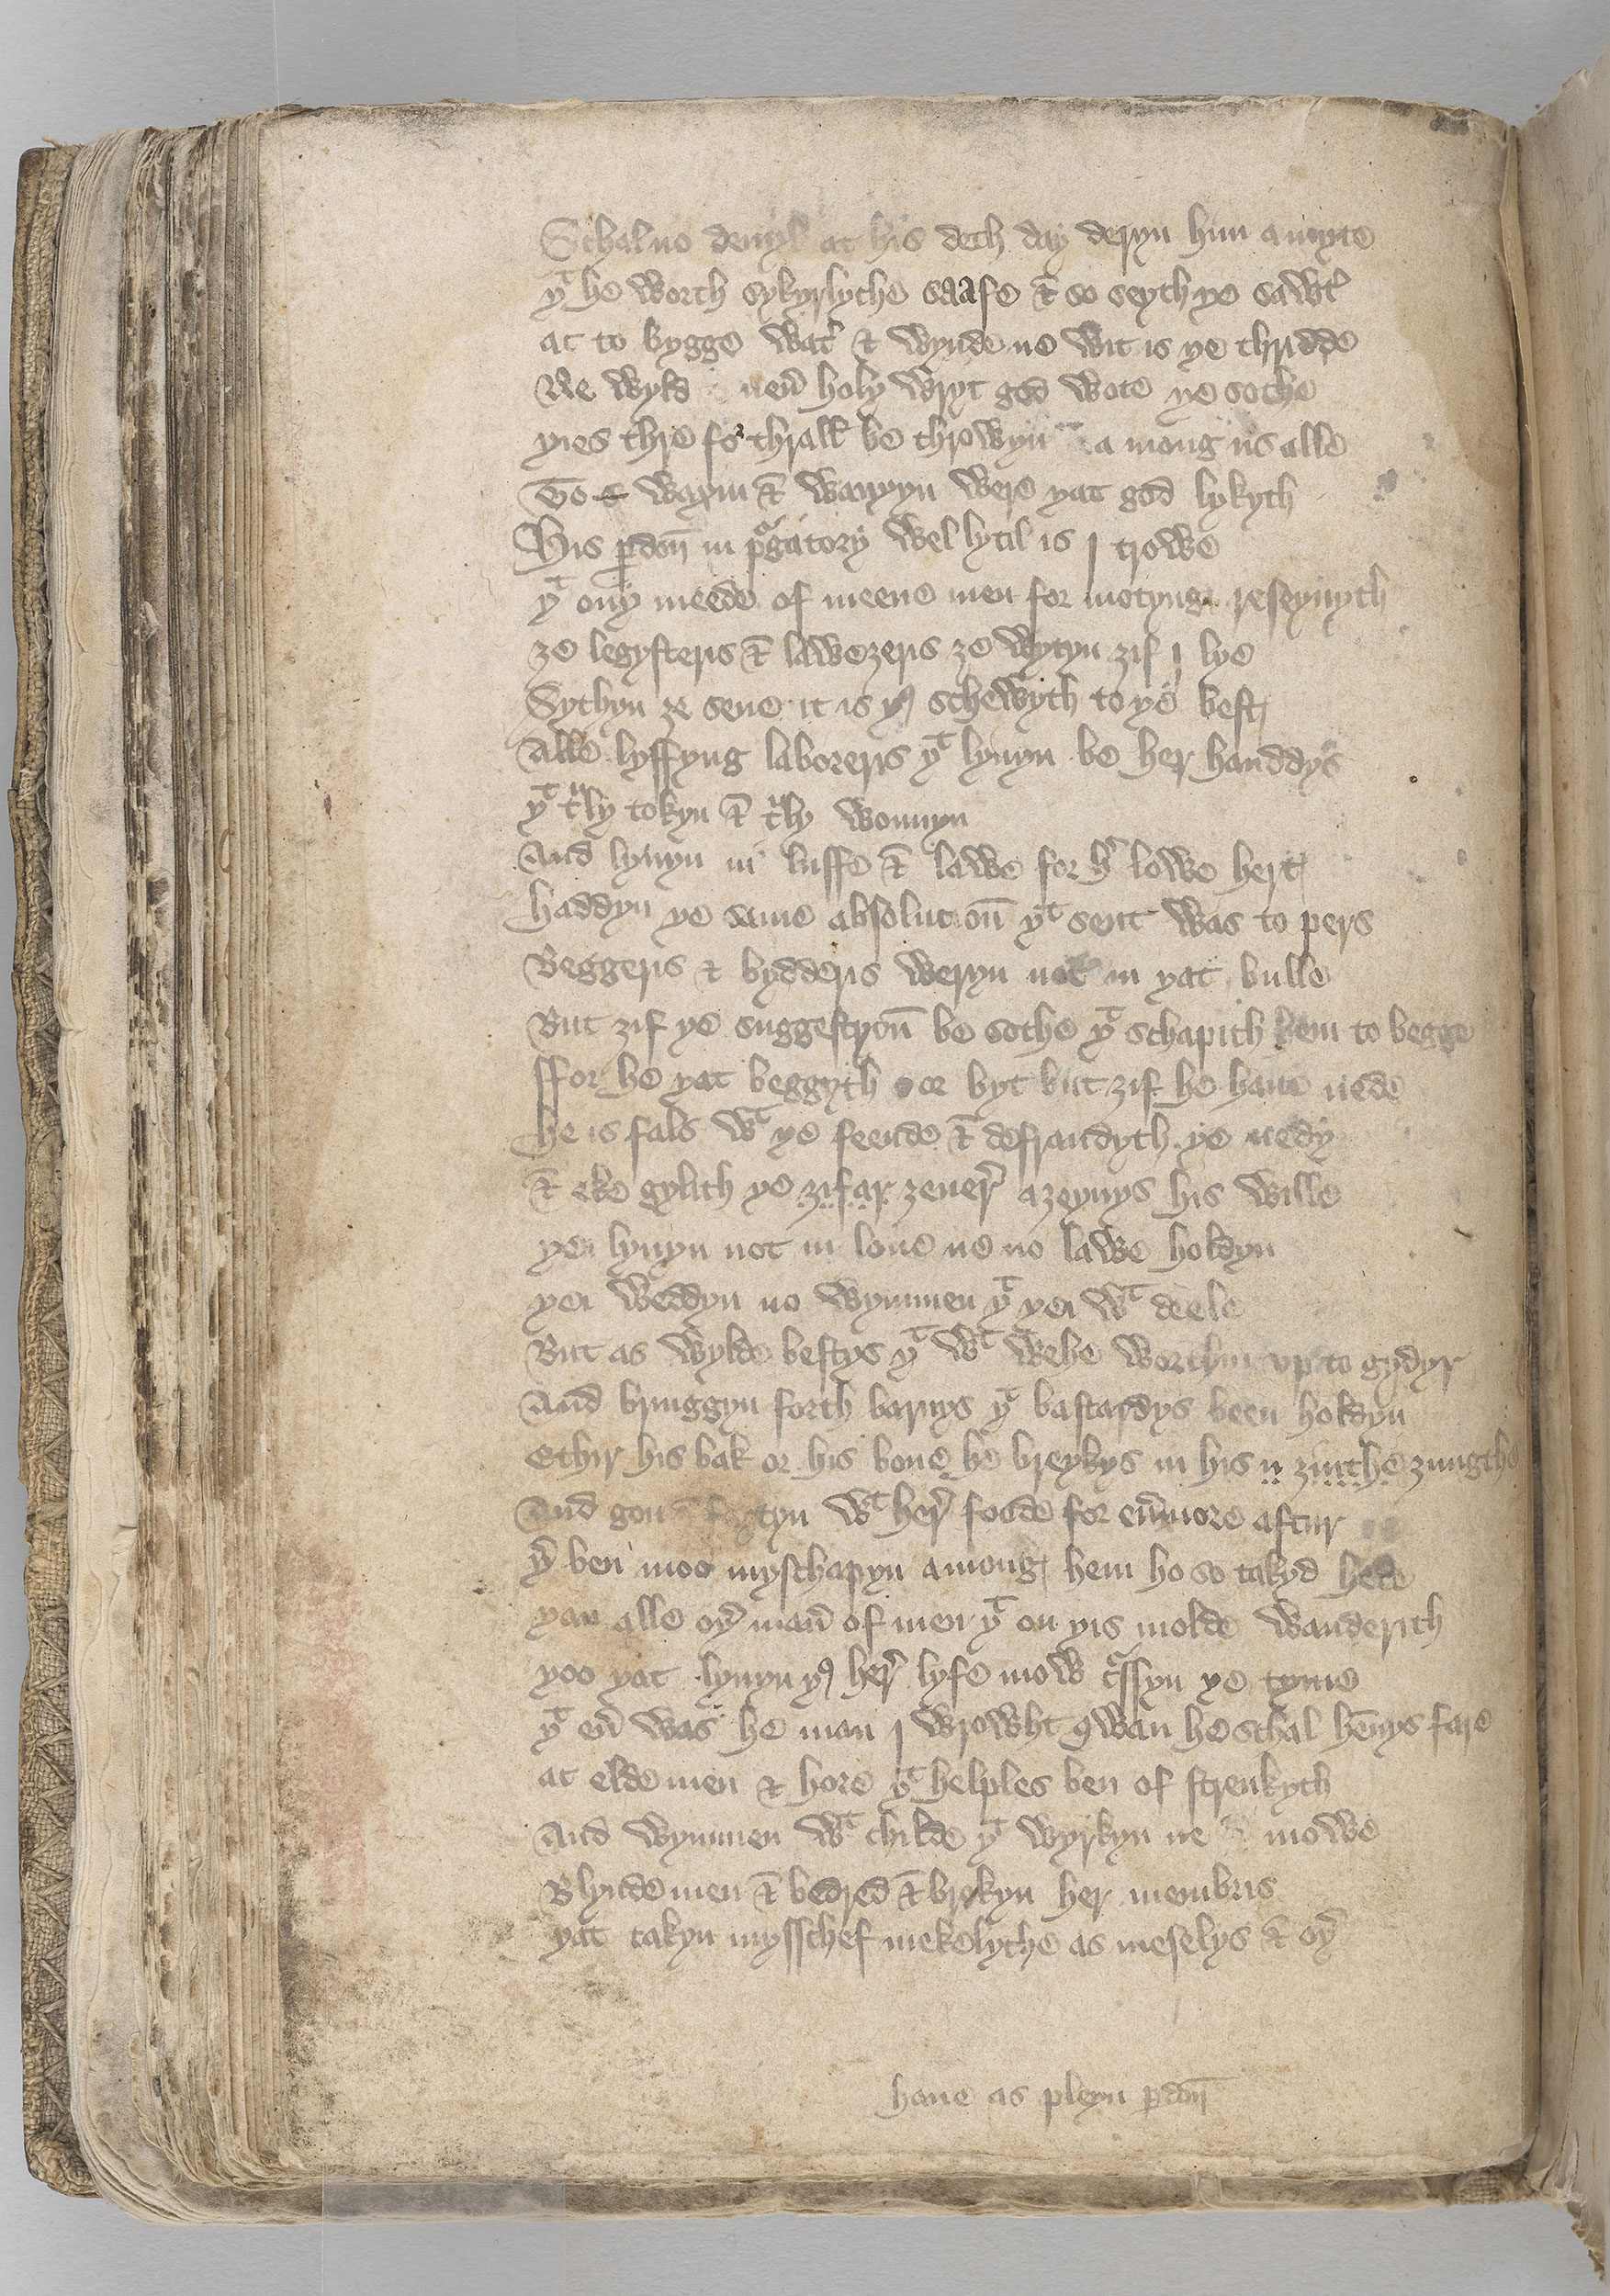 Schal no deuyl at his deth day deryn him a myte
yͭ he worth sykyrlyche saafe & so seyth ye sawtˀ
at to bygge watˀ & wynde ne wit is ye thridde
Ne wyld neuˀ holy wryt god wote ye sothe
yies thre for thrall be throwyn a mong us alle
To waxin & wanyyn were yat god lykyth
His ꝑdon̄ in pᵃgatory wel lytil is I trowe
yͭ ony meede of meene men for motyng reseyuyth
ze legysteris & lawezeris ze wytyn zif I lye
Sythyn ze sene it is yꝰ schewyth to ye best
Alle lyffyng laboreris yͭ lyuyn be her handdys
yͭ tᵘly tokyn & tᵘly wonnyn
And lyuyn in luffe & lawe for hˀ lowe hert
haddyn ye same absolucion̄ yͭ sent was to pers
Beggeris & bydderis weryn not in yat bulle
But zif ye suggestyon̄ be sothe yͭ schapith hem to begge
ffor he yat beggyth or byt but zif he haue nede
he is fals wͭ ye feende & defraudyth ye nedy
& eke gylith ye zifar zeuerˀ azeynys his wille
yei lyuyn not in loue ne no lawe holdyn
yei weddyn no wymmen yͭ yei wͭ deele
But as wylde bestys yͭ wͭ wehe worthin vp to gydyr
And bringgyn forth barnys yͭ bastardys been holdyn
Ethir his bak or his bone he breykys in his n zinthe zungthe
And gon tyn wͭ herˀ foode for euˀmore aftur
yˀ ben moo myschapyn among hem ho so takyd hede
yan alle oyˀ manˀ of men yͭ on yis molde wanderith
yoo yat lyuyn yꝰ herˀ lyfe mow cᵃssyn ye tyme
yͭ euˀ was he man I wrowht qwan he schal hēnys fare
at elde men & hore yͭ helples ben of strenkyth
And wymmen wͭ childe yͭ wyrkyn ne mowe
Blynde men & bedred & brokyn her membris
yat takyn mysschef mekelyche as meselys & oyˀ
haue as pleyn ꝑdon̄